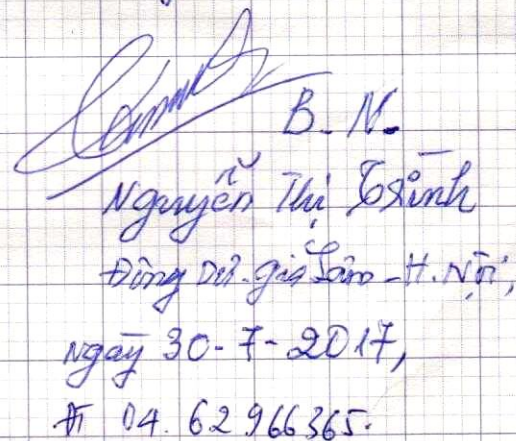 B. N.
Nguyễn Thị Trinh
Đông Dư - Gia Lâm - H. Nội,
Ngày 30-7-2017,
ĐT 04. 62966365.